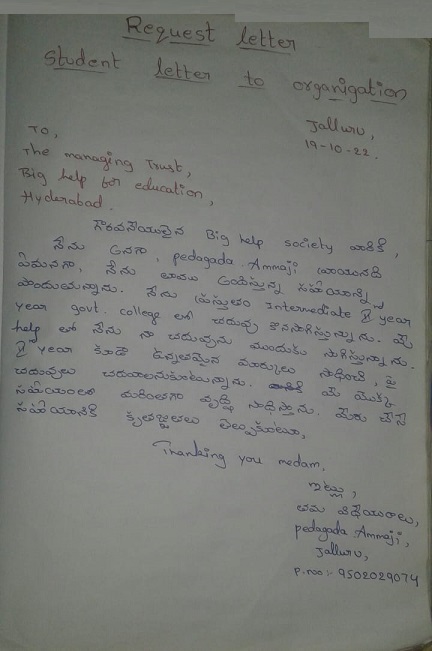 Request letter
Student letter to organigation
Jalluru,
19-10-22.
To,
The managing Trust,
Big help for education,
Hyderabad.
గౌరవనీయులైన Big help society వారికి,
నేను అనగా, pedagada Ammaji వ్రాయునది
ఏమనగా, నేను తాము అందిస్తున్న సహాయాన్ని
పొందుతున్నాను. నేను ప్రస్తుతం Intermediate II year
year govt. college లో చదువు కొనసాగిస్తున్నాను. మీ
help తో నేను నా చదువును ముందుకు సాగిస్తున్నాను.
II year కూడా ఉన్నతమైన మార్కులు సాధించి, పై
చదువులు చదవాలనుకుంటున్నాను. మీ యొక్క
సహాయంతో మరింతగా వృద్ధి సాధిస్తాను. మీరు చేసే
సహాయానికి కృతజ్ఞతలు తెలుపుకుంటూ,
Thanking you medam,
ఇట్లు,
తమ విధేయురాలు,
pedagada.Ammaji,
Jalluru,
P.no:- 9502029074